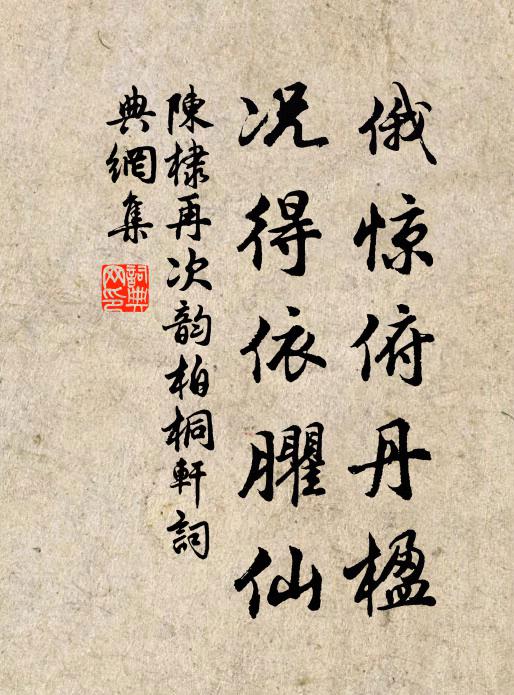 俄惊俯丹楹
况得依臞仙
陳棣再次韵柏桐軒詞
典網集
詞典網印